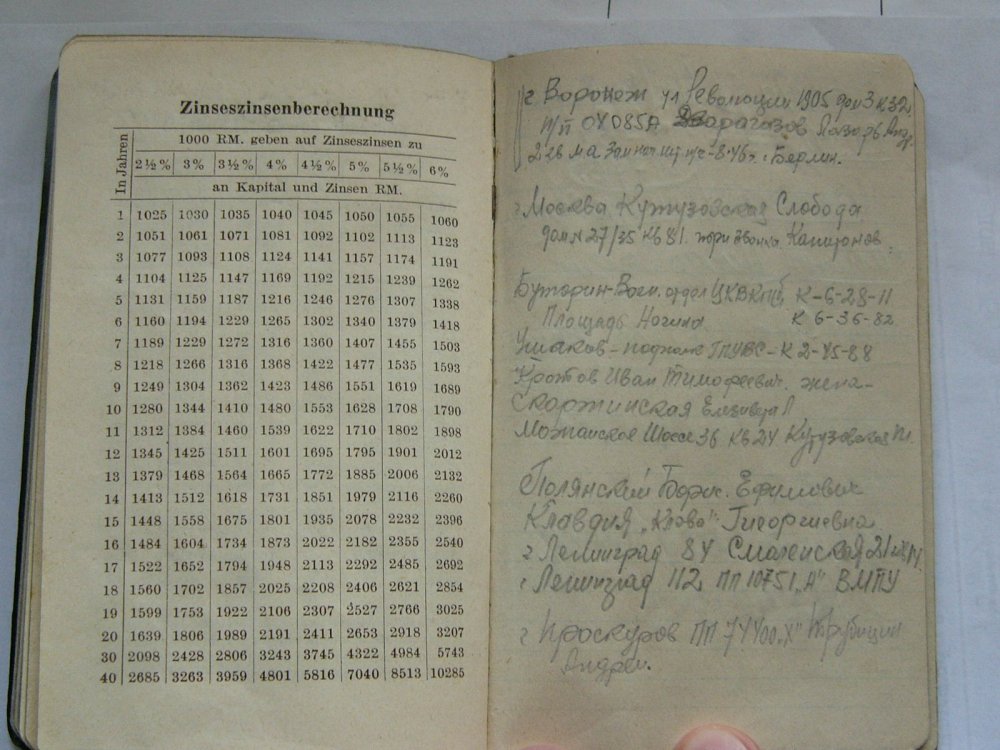 Zinseszinsenberechnung
In Jahren
1000 RM. geben auf Zinseszinsen zu
2 ½ % 3 % 3 ½ % 4 % 4 ½ % 5 % 5 ½ % 6 %
an Kapital und Zinsen RM.
1 1025 1030 1035 1040 1045 1050 1055 1060
2 1051 1061 1071 1081 1092 1102 1113 1123
3 1077 1093 1108 1124 1141 1157 1174 1191
4 1104 1125 1147 1169 1192 1215 1239 1262
5 1131 1159 1187 1216 1246 1276 1307 1338
6 1160 1194 1229 1265 1302 1340 1379 1418
7 1189 1229 1272 1316 1360 1407 1455 1503
8 1218 1266 1316 1368 1422 1477 1535 1593
9 1249 1304 1362 1423 1486 1551 1619 1689
10 1280 1344 1410 1480 1553 1628 1708 1790
11 1312 1384 1460 1539 1622 1710 1802 1898
12 1345 1425 1511 1601 1695 1795 1901 2012
13 1379 1468 1564 1665 1772 1885 2006 2132
14 1413 1512 1618 1731 1851 1979 2116 2260
15 1448 1558 1675 1801 1935 2078 2232 2396
16 1484 1604 1734 1873 2022 2182 2355 2540
17 1522 1652 1794 1948 2113 2292 2485 2692
18 1560 1702 1857 2025 2208 2406 2621 2854
19 1599 1753 1922 2106 2307 2527 2766 3025
20 1639 1806 1989 2191 2411 2653 2918 3207
30 2098 2428 2806 3243 3745 4322 4984 5743
40 2685 3263 3959 4801 5816 7040 8513 10285
г. Воронеж ул Революции 1905 дом 3 к 32
п/п 04085А
Берлин.
г Москва Кутузовская Слобода
дом № 27/35 кв 81. три звонка Капитонов
Буторин-Воен. отдел ЦКВКПб К-6-28-11
Площадь Ногина К 6-36-82
Ушаков - К 2-45-88
Кротов Иван Тимофеевич. жена-
Скоржинская
Можайское Шоссе 36 кв 24 Кутузовская
Полянский Борис. Ефимович
Клавдия „Клава" Георгиевна
г Ленинград 84 Смоленская
г Ленинград 112 ПП 10751 „А" ВМПУ
г Проскуров ПП 74400 „Х" Трубицин
Андрей.